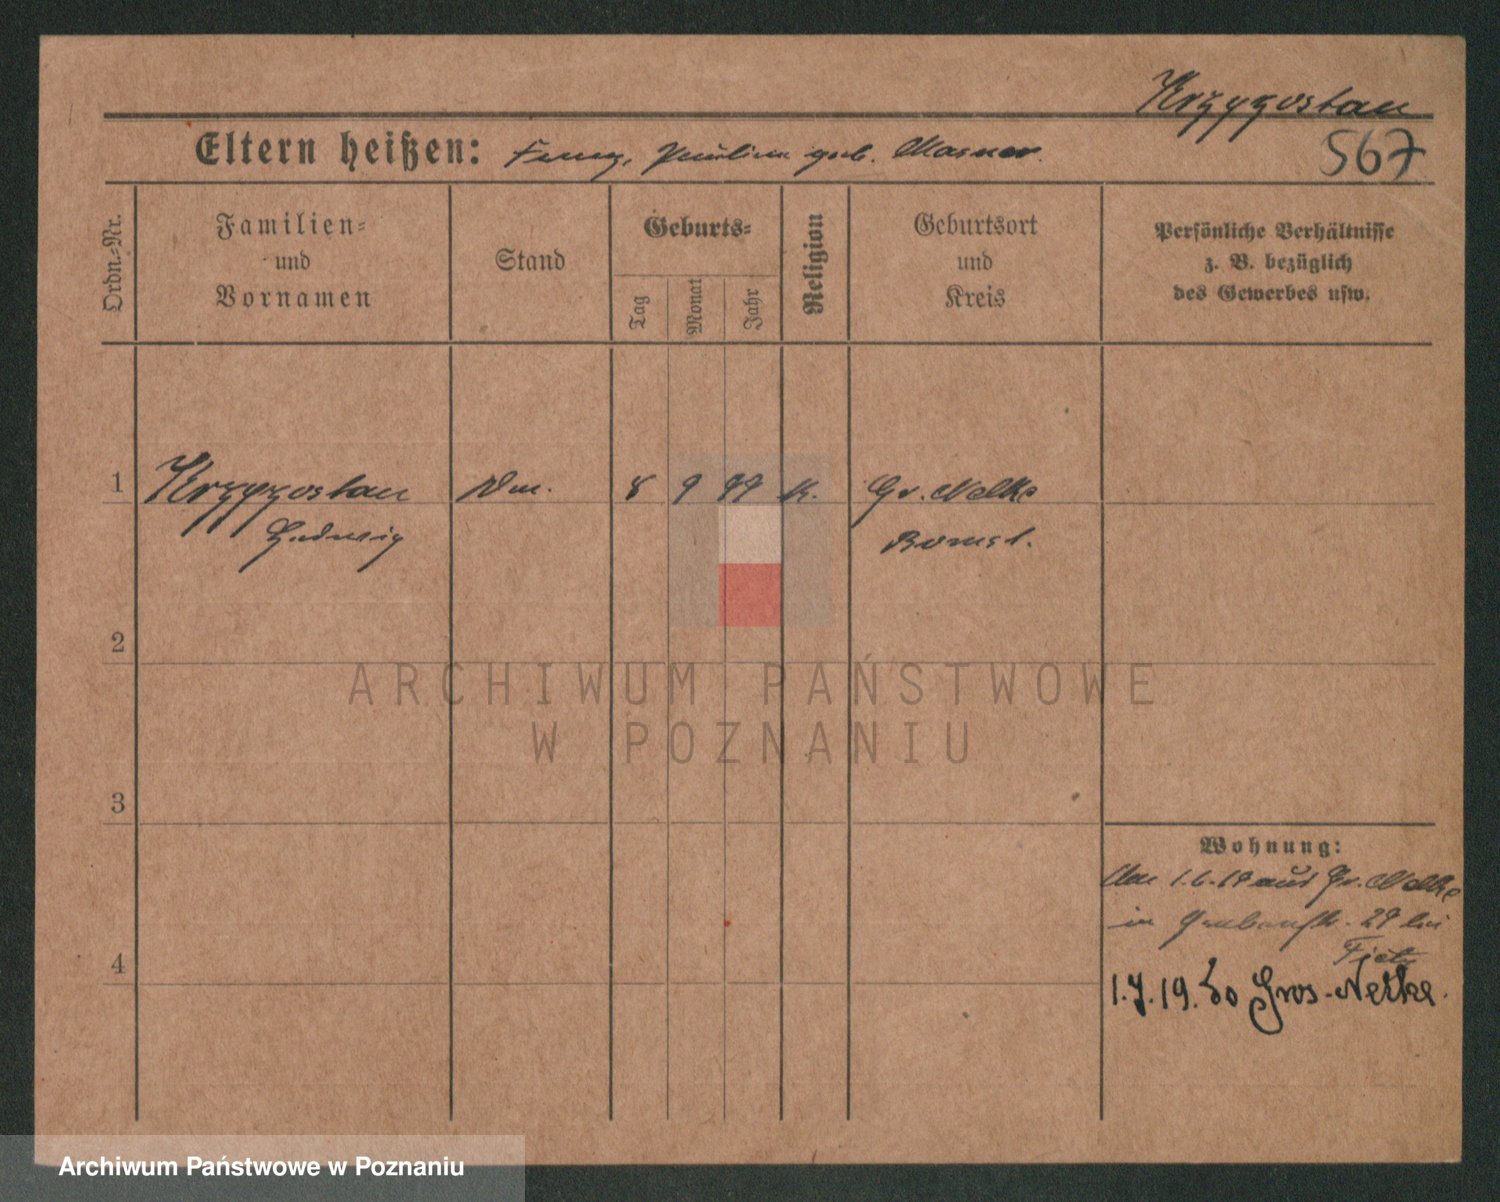 Krzyzostan
567
Eltern heißen: Franz, Paulina geb. Masner.
Ordn.-Nr.
Familien- und Vornamen
Stand
Geburts-
Tag
Monat
Jahr
Religion
Geburtsort und Kreis
Persönliche Verhältnisse z. B. bezüglich des Gewerbes usw.
1
Krzyzostan
8 9 99 K.
Gr. Nelke
Ludwig
Bomst.
2
ARCHIWUM PAŃSTWOWE
W POZNANIU
3
Wohnung:
1.6.19 aus Gr. Nelke
in 29 bei
4
1.7.19. do Gros-Nelke.
Archiwum Państwowe w Poznaniu